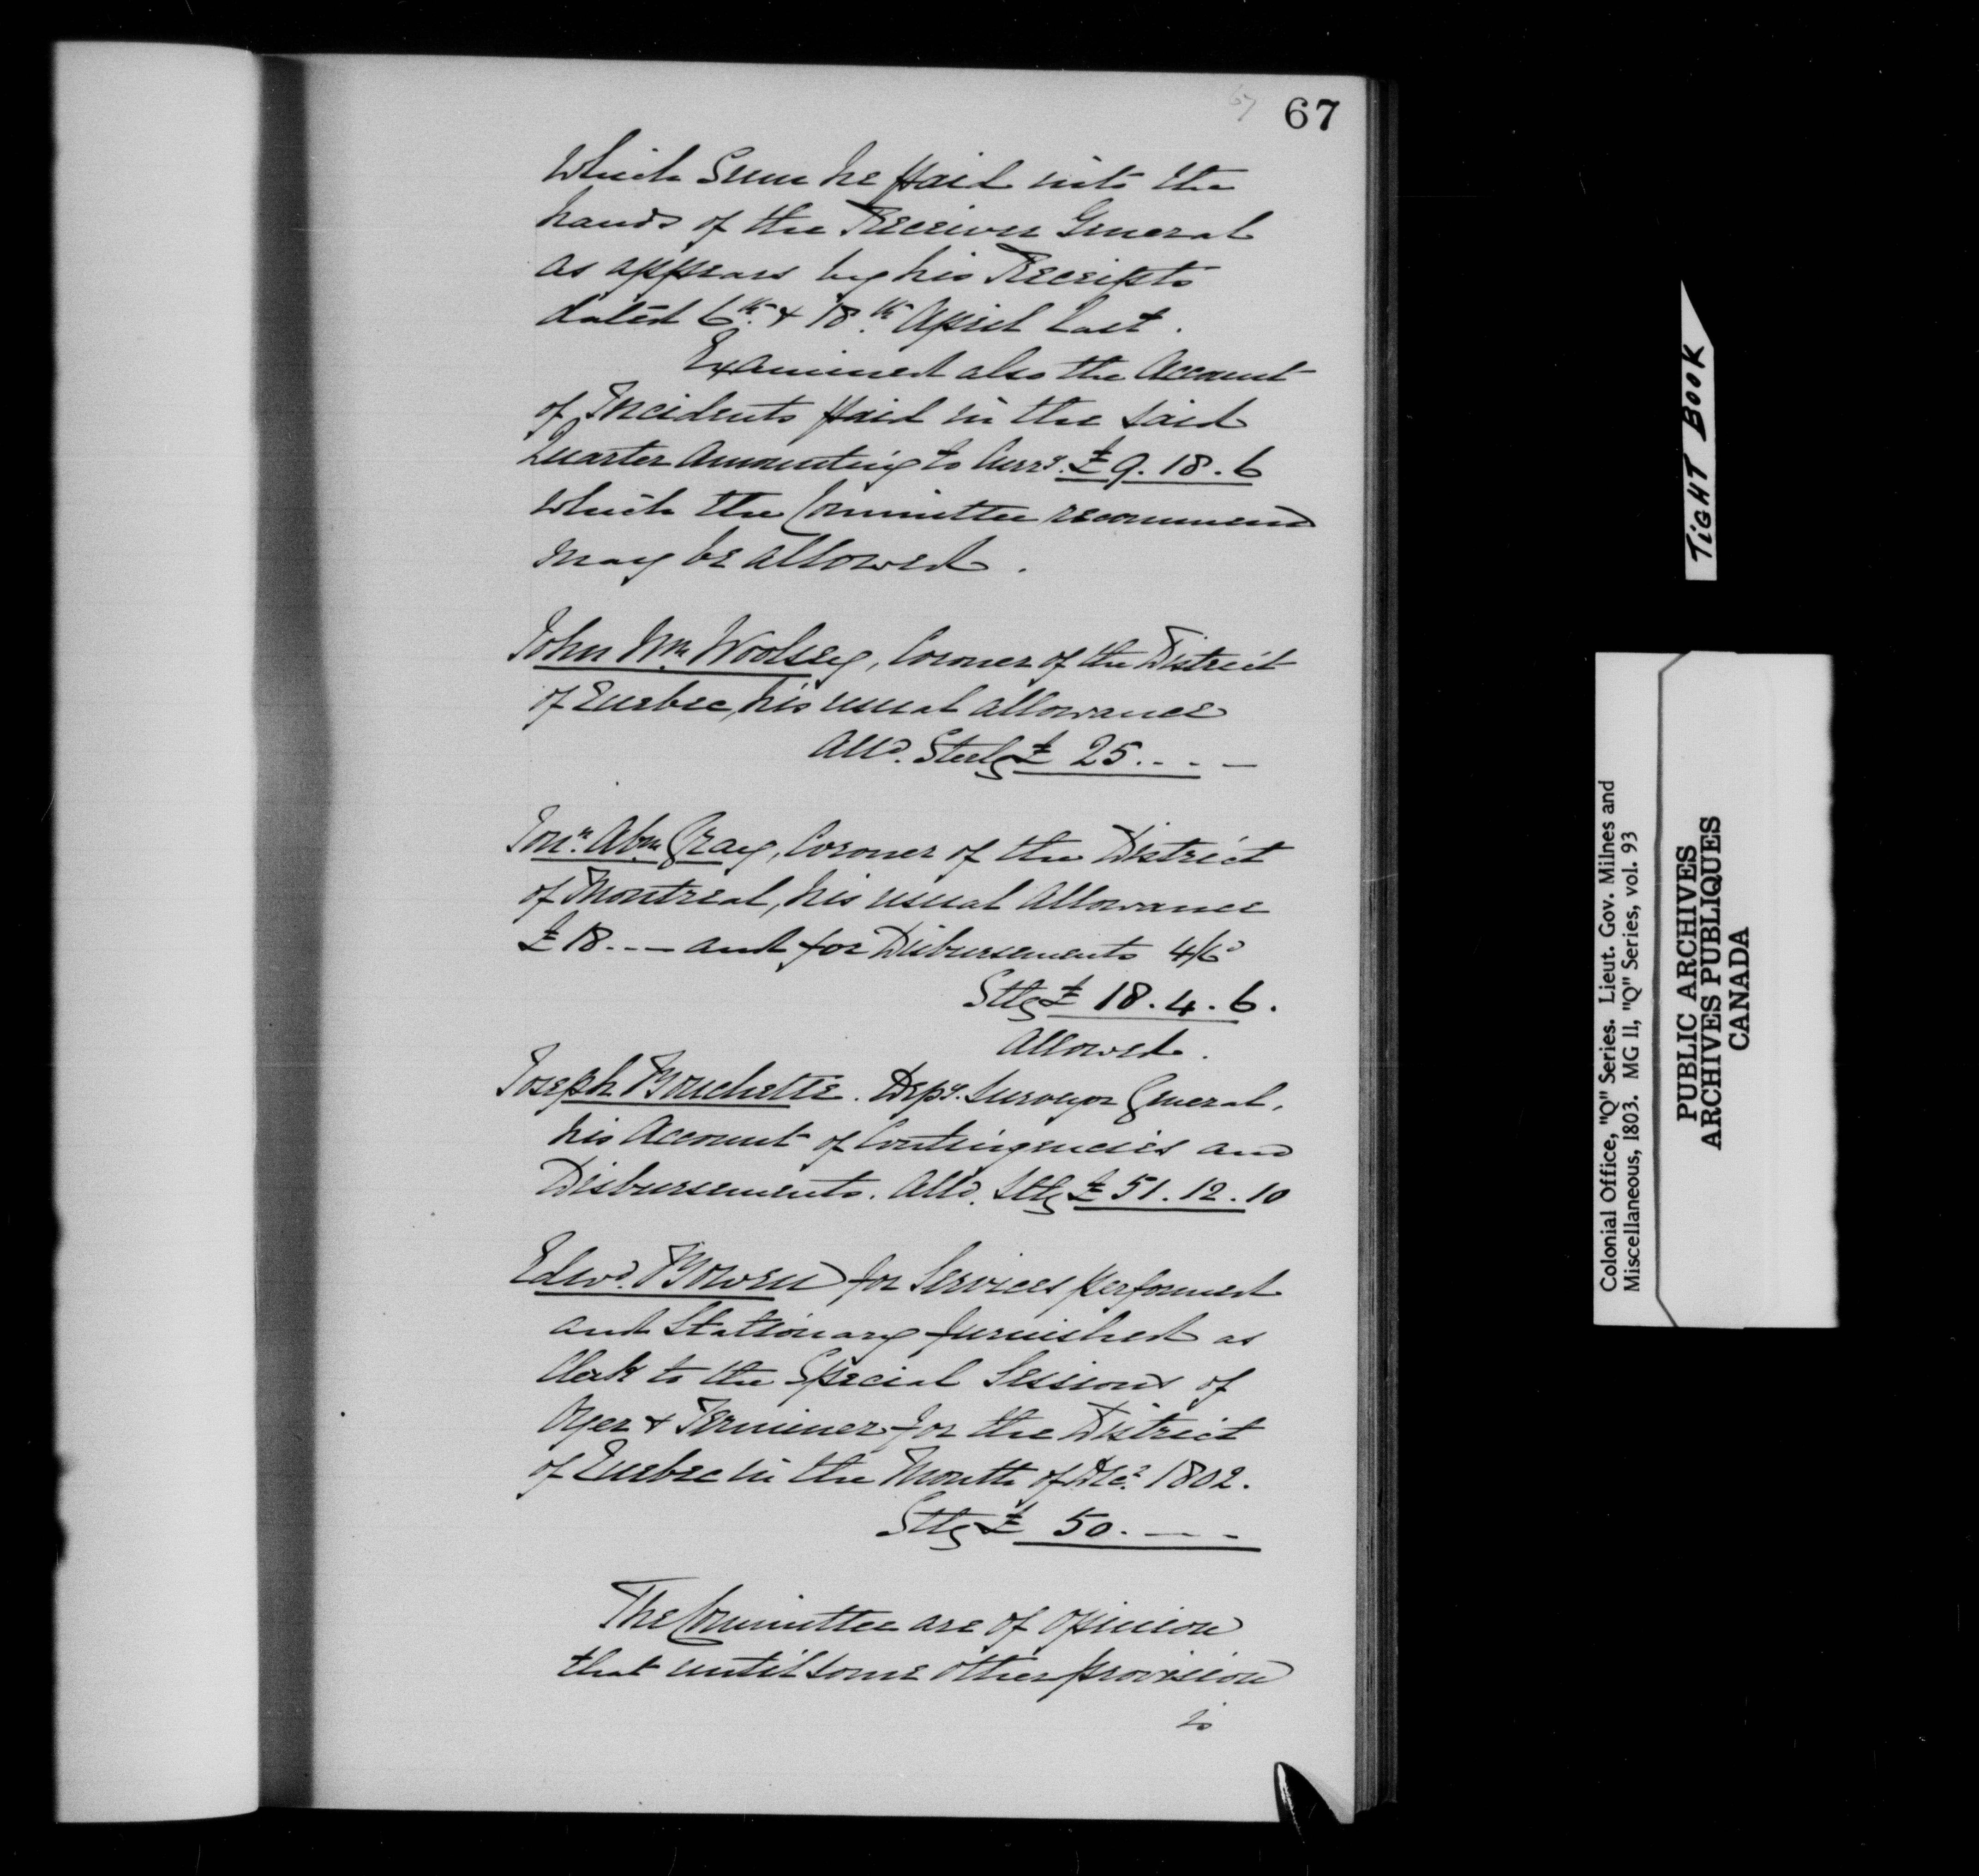 67
67
Which Sum he paid into the
hands of the Receiver General
as appears by his Receipts
dated 6th. & 18th. April last.
Examined also the Account
of Incidents paid in the said
Quarter Amounting to Curry. £9.18.6
which the Committee recommend
may be allowed.
John Wm. Woolsey, Coroner of the District
of Quebec, his usual allowance
Alld. Sterlg £ 25. - - -
Jonn. Abm Gray, Coroner of the District
of Montreal, his usual Allowance
£ 18. - - and for Disbursements 4/6d
Sttg £ 18.4.6.
Allowed.
Joseph Bouchette. Depy. Surveyor General,
his Account of Contingencies and
Disbursements. Alld. Sttg £ 51.12.10
Edwd. Bowen for Services performed
and Stationary furnished as
Clerk to the Special Sessions of
Oyer & Terminer for the District
of Quebec in the Month of Decr. 1802.
Sttg £ 50. - - -
The Committee are of opinion
that until some other provision
is
TIGHT BOOK
Colonial Office, "Q" Series. Lieut. Gov. Milnes and
Miscellaneous, 1803. MG 11, "Q" Series, vol. 93
PUBLIC ARCHIVES
ARCHIVES PUBLIQUES
CANADA